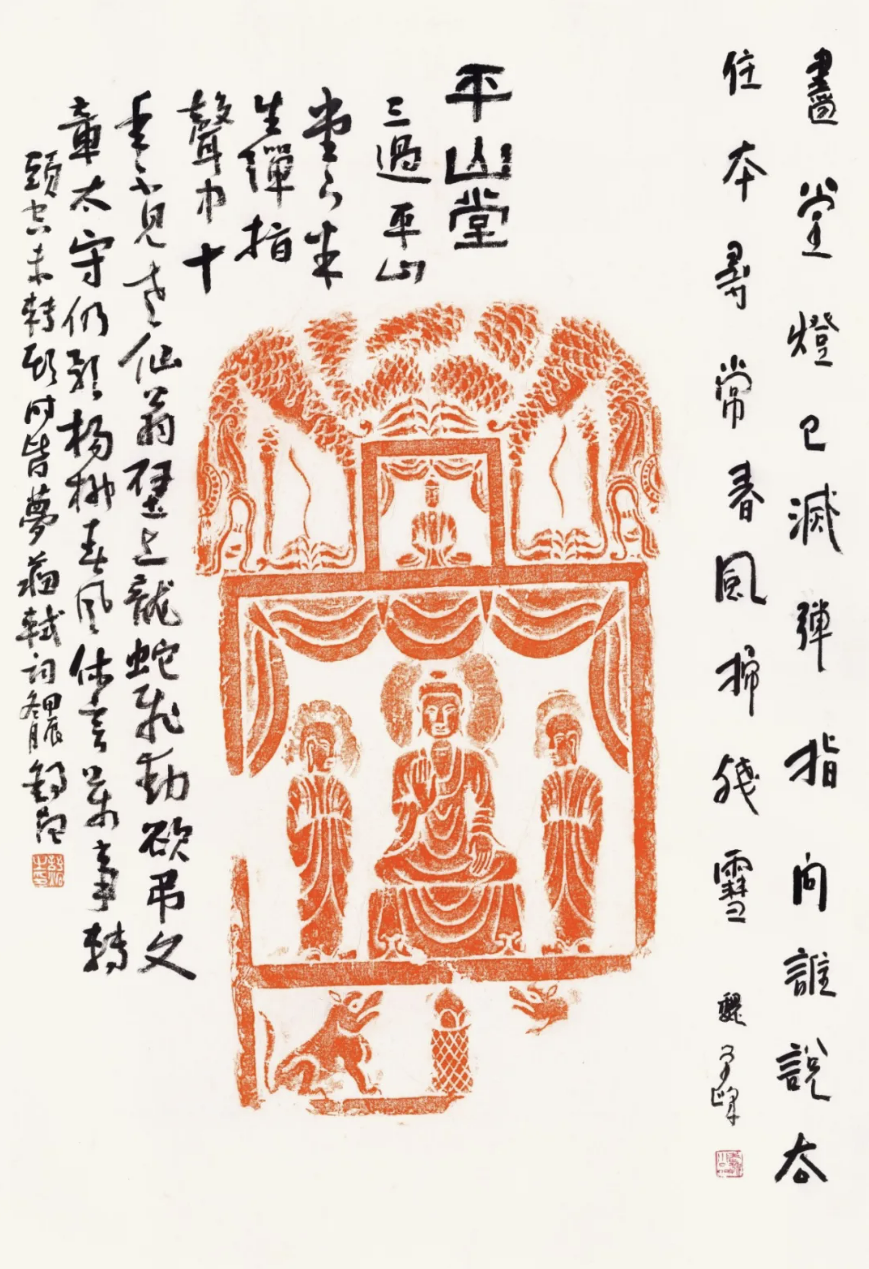 畫堂燈已滅彈指向誰說去
住本尋常春風掃殘雪
平山堂
三過平山
堂下半
生彈指
聲中十
年不見老仙翁壁上龍蛇飛動欲吊文
章太守仍歌楊柳春風休言萬事轉
頭空未轉頭時皆夢蘇軾詞甲辰冬月